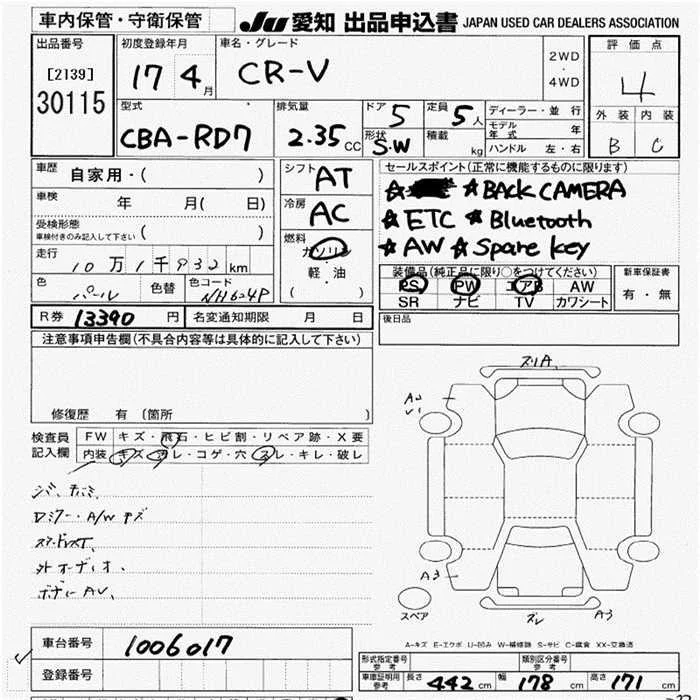 車内保管・守衛保管
JU 愛知 出品申込書 JAPAN USED CAR DEALERS ASSOCIATION
出品番号
[2139]
30115
初度登録年月
17 4月
車名・グレード
CR-V
2WD
・
4WD
評価点
4
外装 内装
B C
型式
CBA-RD7
排気量
2.35CC
ドア 5
形状 S・W
定員 5人
積載 kg
ディーラー・並行
モデル年式 年
ハンドル 左・右
車歴
自家用・( )
車検 年 月( 日)
受検形態
車検付きのみ記入して下さい ( )
走行
10万1千932km
色 パール
色替
色コード NH624P
シフト AT
冷房 AC
燃料
ガソリン
軽・油
( )
セールスポイント(正常に機能するものに限ります)
☆ ☆BACK CAMERA
☆ETC ☆Bluetooth
☆AW ☆Spare key
装備品(純正品に限り○をつけてください)
PS PW エアB AW
SR ナビ TV カワシート
新車保証書
有・無
R券 13390 円
名変通知期限 月 日
後日品
注意事項申告欄(不具合内容等は具体的に記入して下さい)
修復歴 有 (箇所 )
検査員記入欄
FW キズ・飛石・ヒビ割・リペア跡・X要
内装 キズ・ヨレ・コゲ・穴・スレ・キレ・破レ
Dミラー・A/W キズ
外オーディオ、
ボディーAV、
ズリA
A2
A3
スペア
ズレ
A3
A-キズ E-エクボ U-凹み W-補修跡 S-サビ C-腐食 XX-交換済
車台番号 1006017
登録番号
形式指定番号
参考
類別区分番号
参考
車庫証明用
参考
長さ 442cm 幅 178cm 高さ 171cm